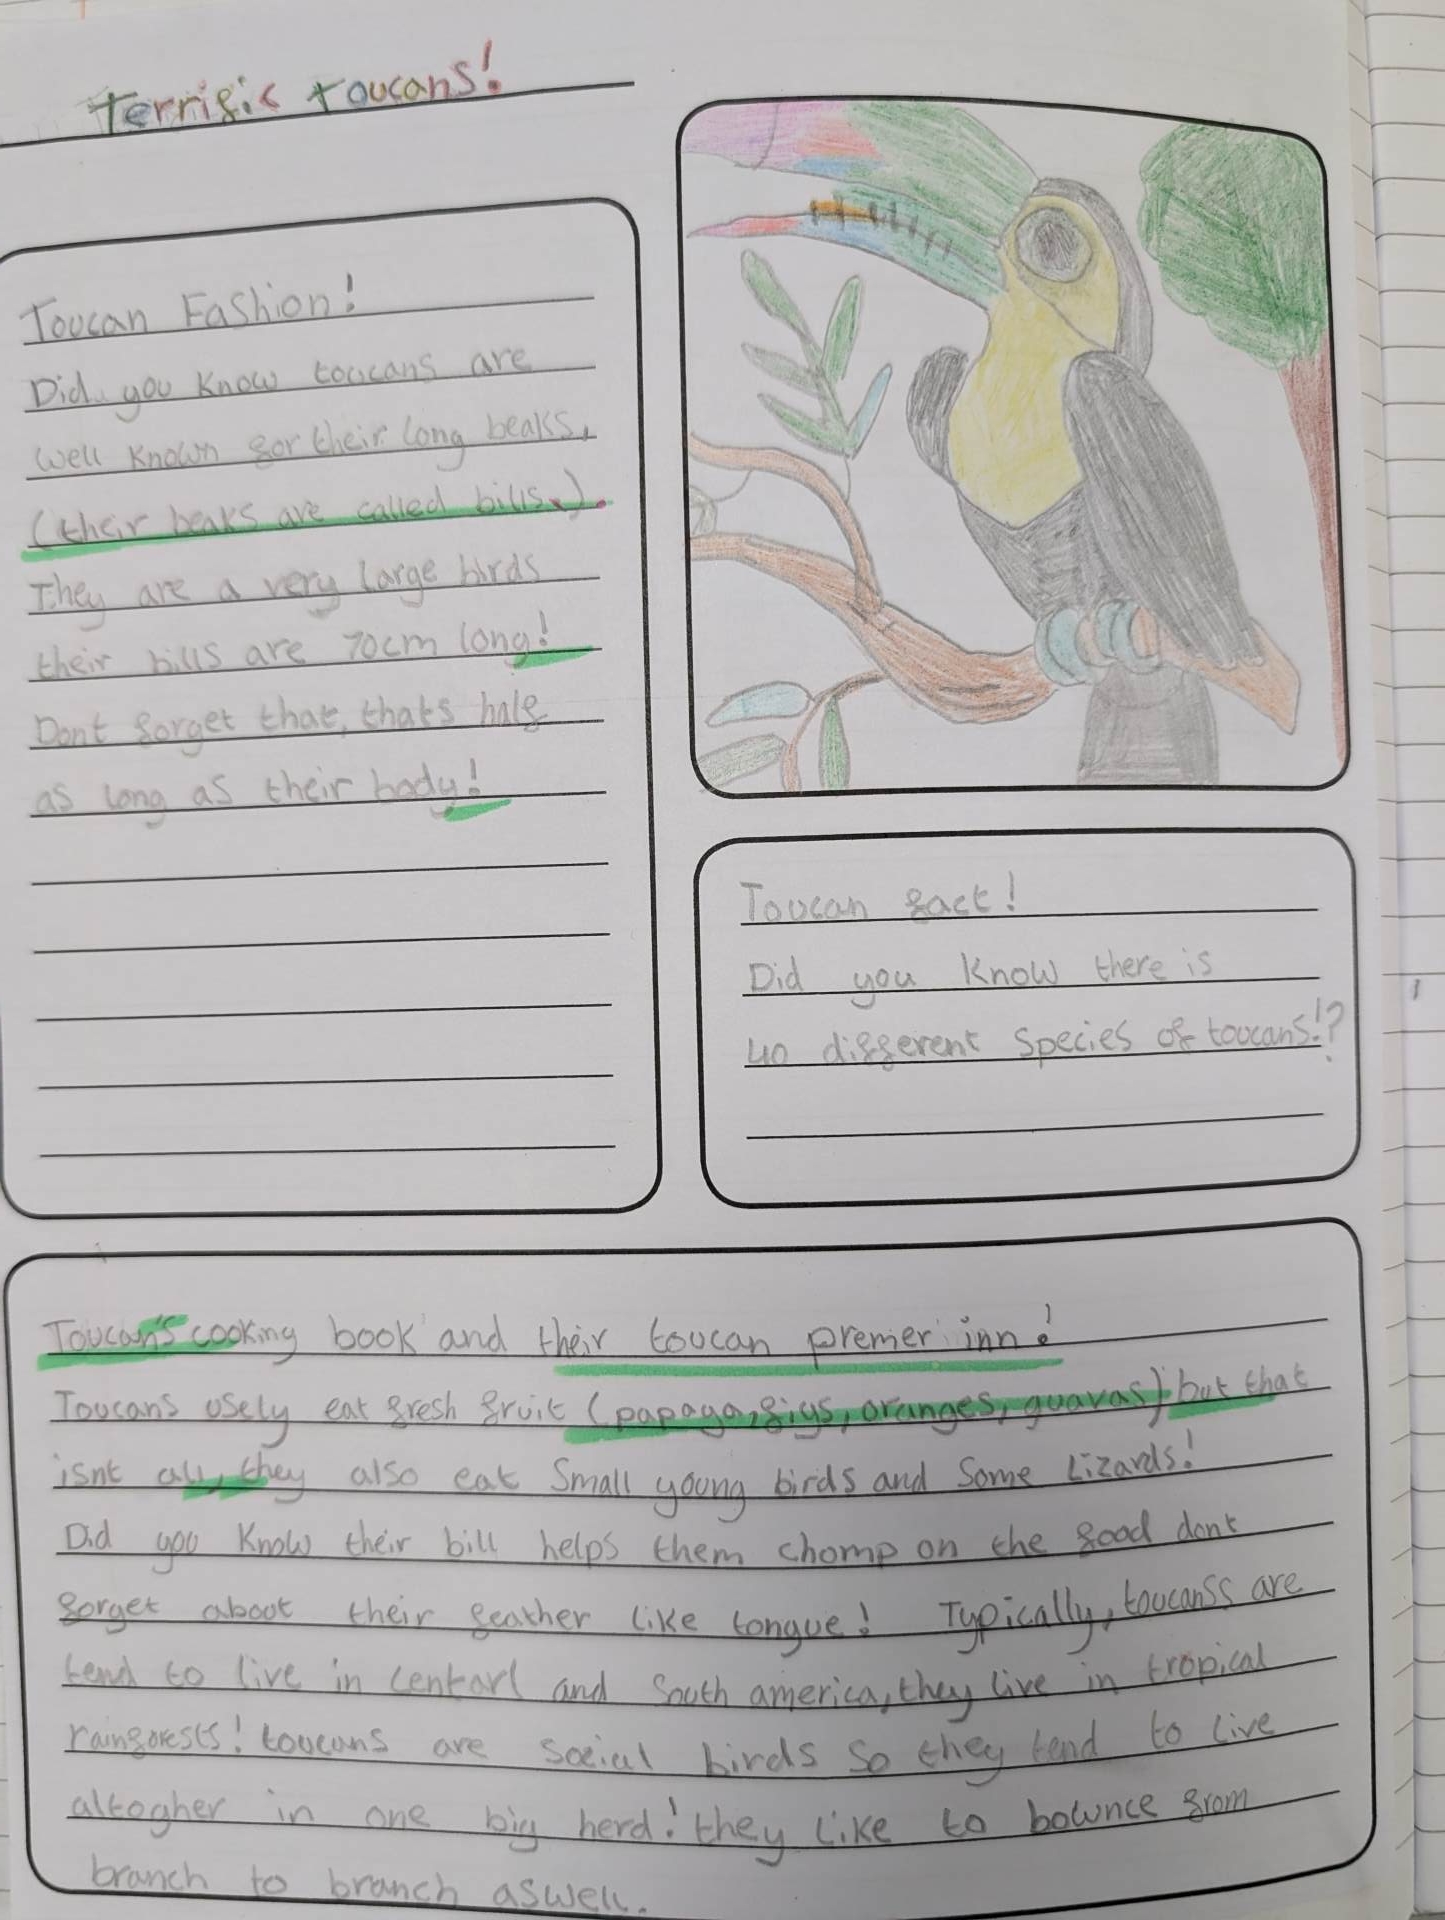 Terrific toucans!
Toucan Fashion!
Did you know toucans are
well known for their long beaks,
(their beaks are called bills.).
They are a very large birds
their bills are 70cm long!
Dont forget that, thats half
as long as their body!
Toucan fact!
Did you know there is
40 different species of toucans!?
Toucan's cooking book and their toucan premer inn!
Toucans usely eat fresh fruit (papaya, figs, oranges, guavas) but that
isnt all, they also eat small young birds and some lizards!
Did you know their bill helps them chomp on the food dont
forget about their feather like tongue! Typically, toucanss are
tend to live in centarl and south america, they live in tropical
rainforests! toucans are social birds so they tend to live
altogher in one big herd! they like to bownce from
branch to branch aswell.